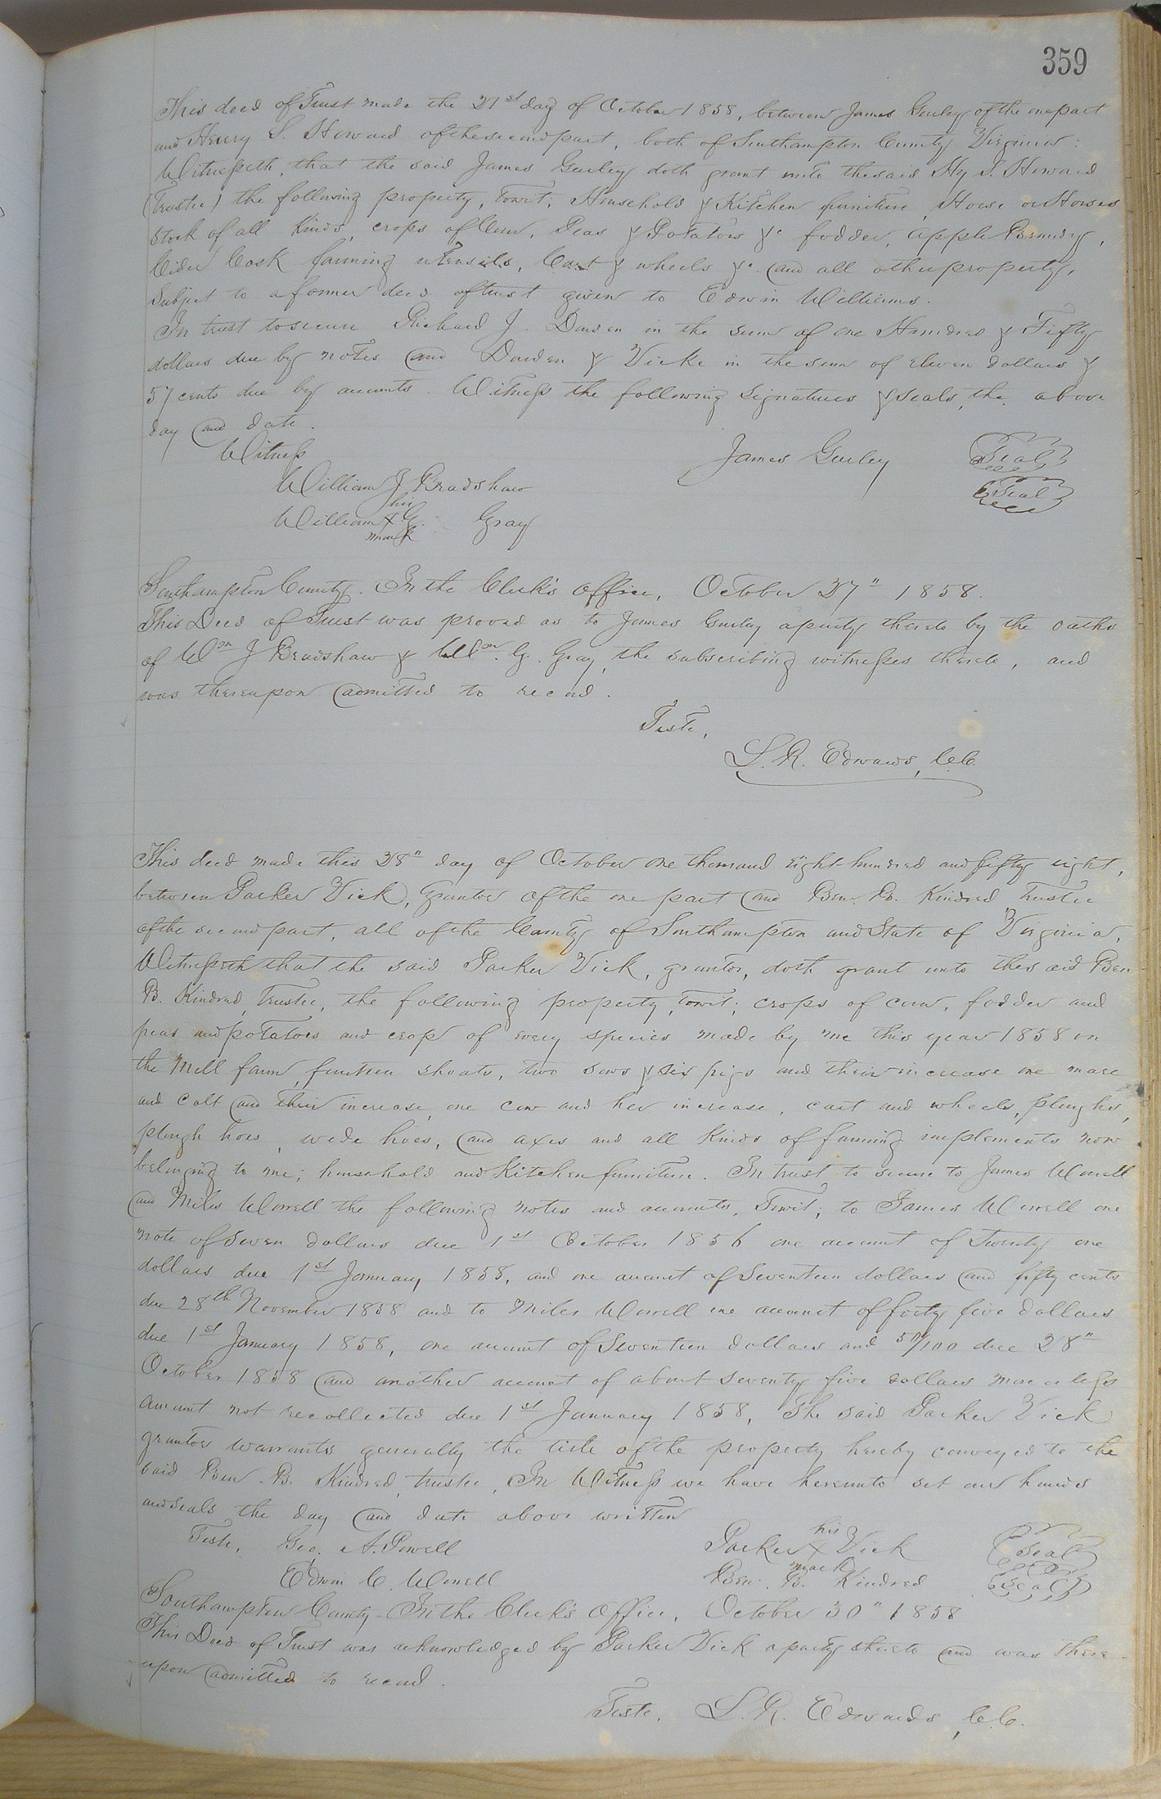 359
This deed of Trust made the 21st day of October 1858, between James Gurley of the one part
and Henry S. Howard of the second part, both of Southampton County Virginia:
Witnesseth, that the said James Gurley doth grant unto the said Hy S. Howard
(Trustee) the following property, towit; Household & Kitchen furniture, Horse or Horses
Stock of all kinds, crops of Corn, Peas & Potatoes &c fodder, apple Brandy,
Cider Cask farming utensils, Cart & wheels &c. and all other property,
Subject to a former deed of trust given to Edwin Williams.
In trust to secure Richard J. Darden in the sum of one Hundred & Fifty
dollars due by notes and Darden & Vicks in the sum of Eleven dollars &
57 cents due by accounts. Witness the following signatures & seals, the above
day and date.
Witness
James Gurley Seal
William J Bradshaw
Seal
his
William X G. Gray
mark
Southampton County. In the Clerk's office, October 27" 1858.
This Deed of Trust was proved as to James Gurley a party thereto by the oaths
of Wm J Bradshaw & Wm. G. Gray, the subscribing witnesses thereto, and
was thereupon admitted to record.
Teste,
L. R. Edwards, C.C.
This deed made this 28" day of October one thousand eight hundred and fifty eight,
between Parker Vick, Grantor of the one part and Ben. B. Kindred Trustee
of the second part, all of the County of Southampton and State of Virginia,
Witnesseth that the said Parker Vick, grantor, doth grant unto the said Ben
B. Kindred, trustee, the following property, towit; crops of corn, fodder and
peas and potatoes and crop of every species made by me this year 1858 on
the Mill farm, fourteen shoats, two sows & six pigs and their increase one mare
and colt and their increase, one cow and her increase, cart and wheels, ploughs,
plough hoes, wede hoes, and axes and all kinds of farming implements now
belonging to me; household and Kitchen furniture. In trust to secure to James Worrell
and Miles Worrell the following notes and accounts, Towit; to James Worrell one
note of Seven dollars due 1st October 1856 one account of Twenty one
dollars due 1st January 1858, and one account of Seventeen dollars and fifty cents
due 28th November 1858 and to Miles Worrell one account of forty five dollars
due 1st January 1858, one account of Seventeen dollars and 50/100 due 28"
October 1858 and another account of about Seventy five dollars more or less
amount not recollected due 1st January 1858, The said Parker Vick
grantor warrants generally the title of the property hereby conveyed to the
said Ben. B. Kindred, trustee, In Witness we have hereunto set our hands
and seals the day and date above written
Teste, Geo. A. Powell
his
Parker X Vick Seal
mark
Edwin C. Worrell
Ben. B. Kindred Seal
Southampton County - In the Clerk's Office, October 30" 1858
This Deed of Trust was acknowledged by Parker Vick a party thereto and was there-
upon admitted to record.
Teste, L. R. Edwards, C.C.